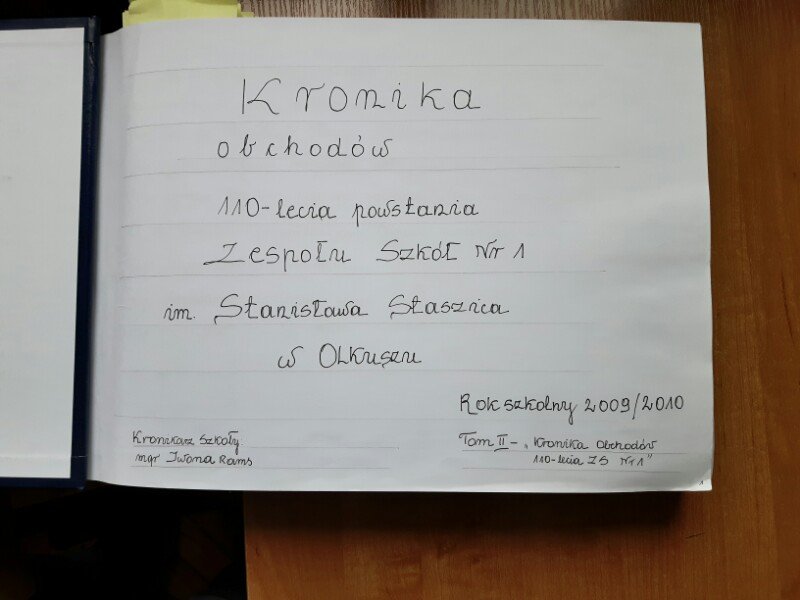 Kronika
obchodów
110-lecia powstania
Zespołu Szkół Nr 1
im. Stanisława Staszica
w Olkuszu
Rok szkolny 2009/2010
Kronikarz Szkoły:
mgr Iwona Rams
Tom II - „Kronika Obchodów
110-lecia ZS Nr 1"
1